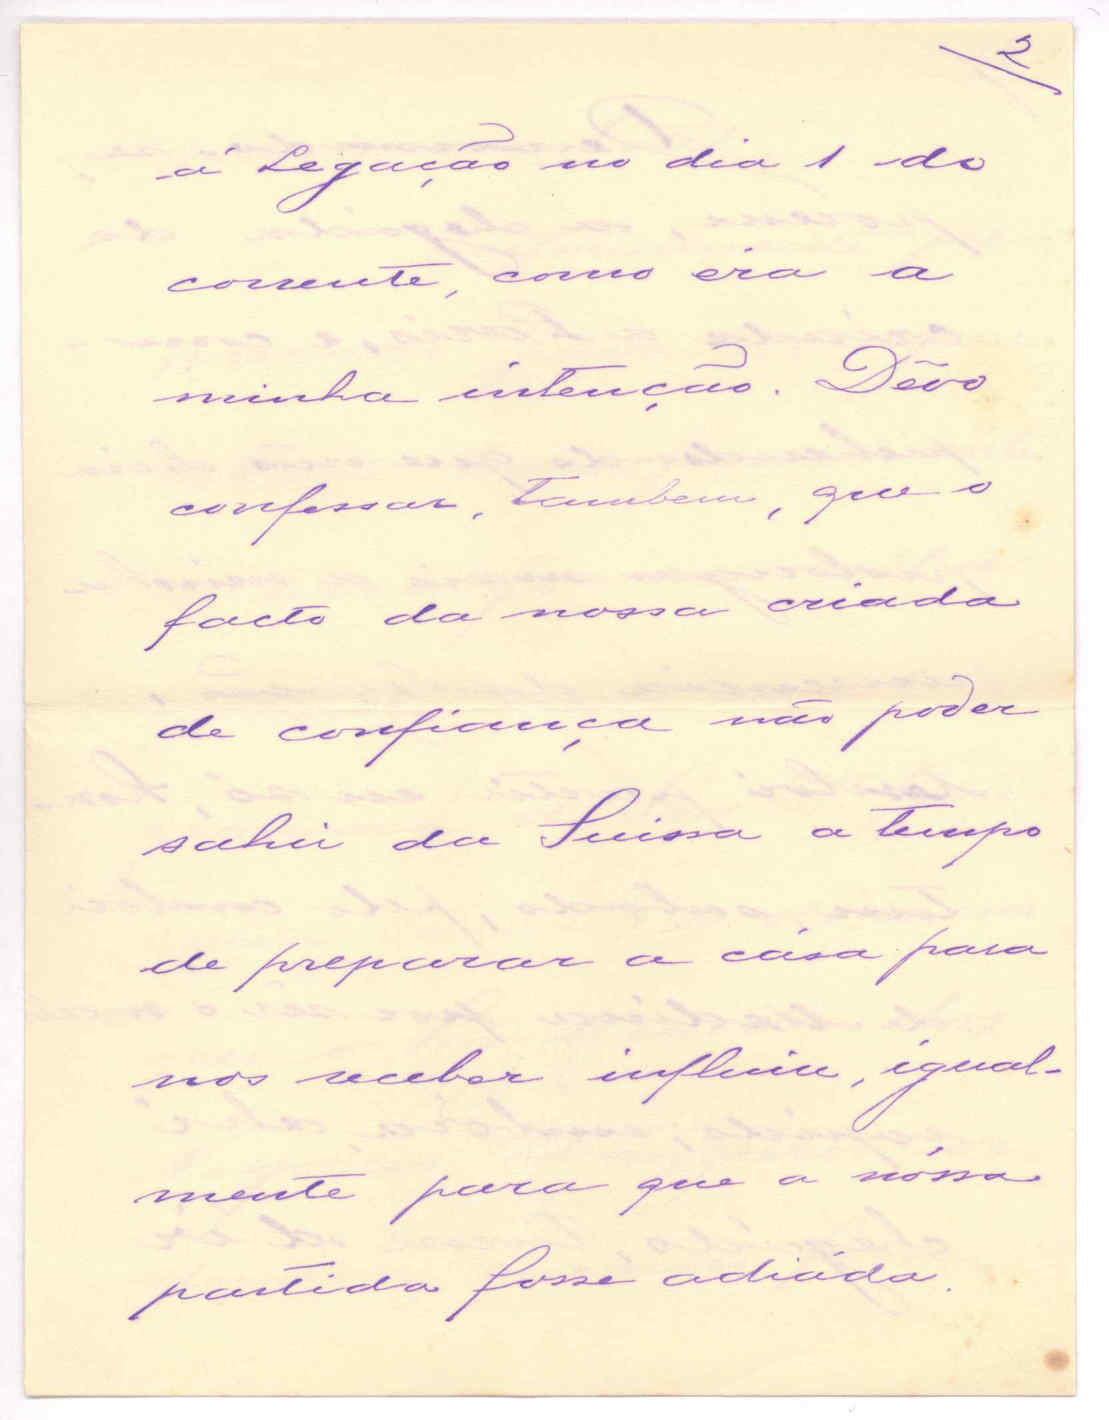 2
á Legação no dia 1 do
corrente, como era a
minha intenção. Dêvo
confessar, tambem, que o
facto da nossa criada
de confiança não poder
sahir da Suissa a tempo
de preparar a cása para
nos receber influiu, igual-
mente para que a nóssa
partida fosse adiáda.